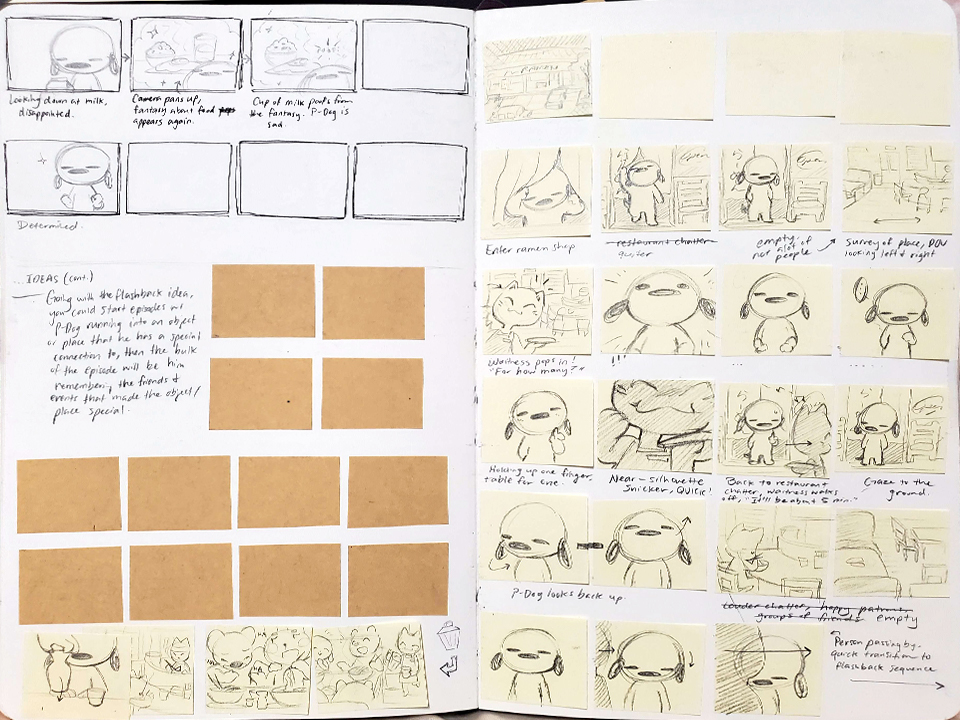 Looking down at milk,
disappointed.
Camera pans up,
fantasy about food
appears again.
Cup of milk poofs from
the fantasy. P-Dog is
sad.
Determined.
... IDEAS (cont.)
Going with the flashback idea,
you could start episodes w/
P-Dog running into an object
or place that he has a special
connection to, then the bulk
of the episode will be him
remembering the friends &
events that made the object/
place special.
Enter ramen shop
restaurant chatter
quiet
empty,
not a lot of
people
survey of place, POV
looking left & right
Waitress pops in!
"For how many?"
!!!
....
....
Holding up one finger,
table for one.
Near-silhouette
snicker, QUICK!
Back to restaurant
chatter, waitress walks
off, "It'll be about 5 min."
Gaze to the
ground.
P-Dog looks back up.
Louder chatter, happy patrons,
groups of friends empty
Person passing by-
quick transition to
flashback sequence